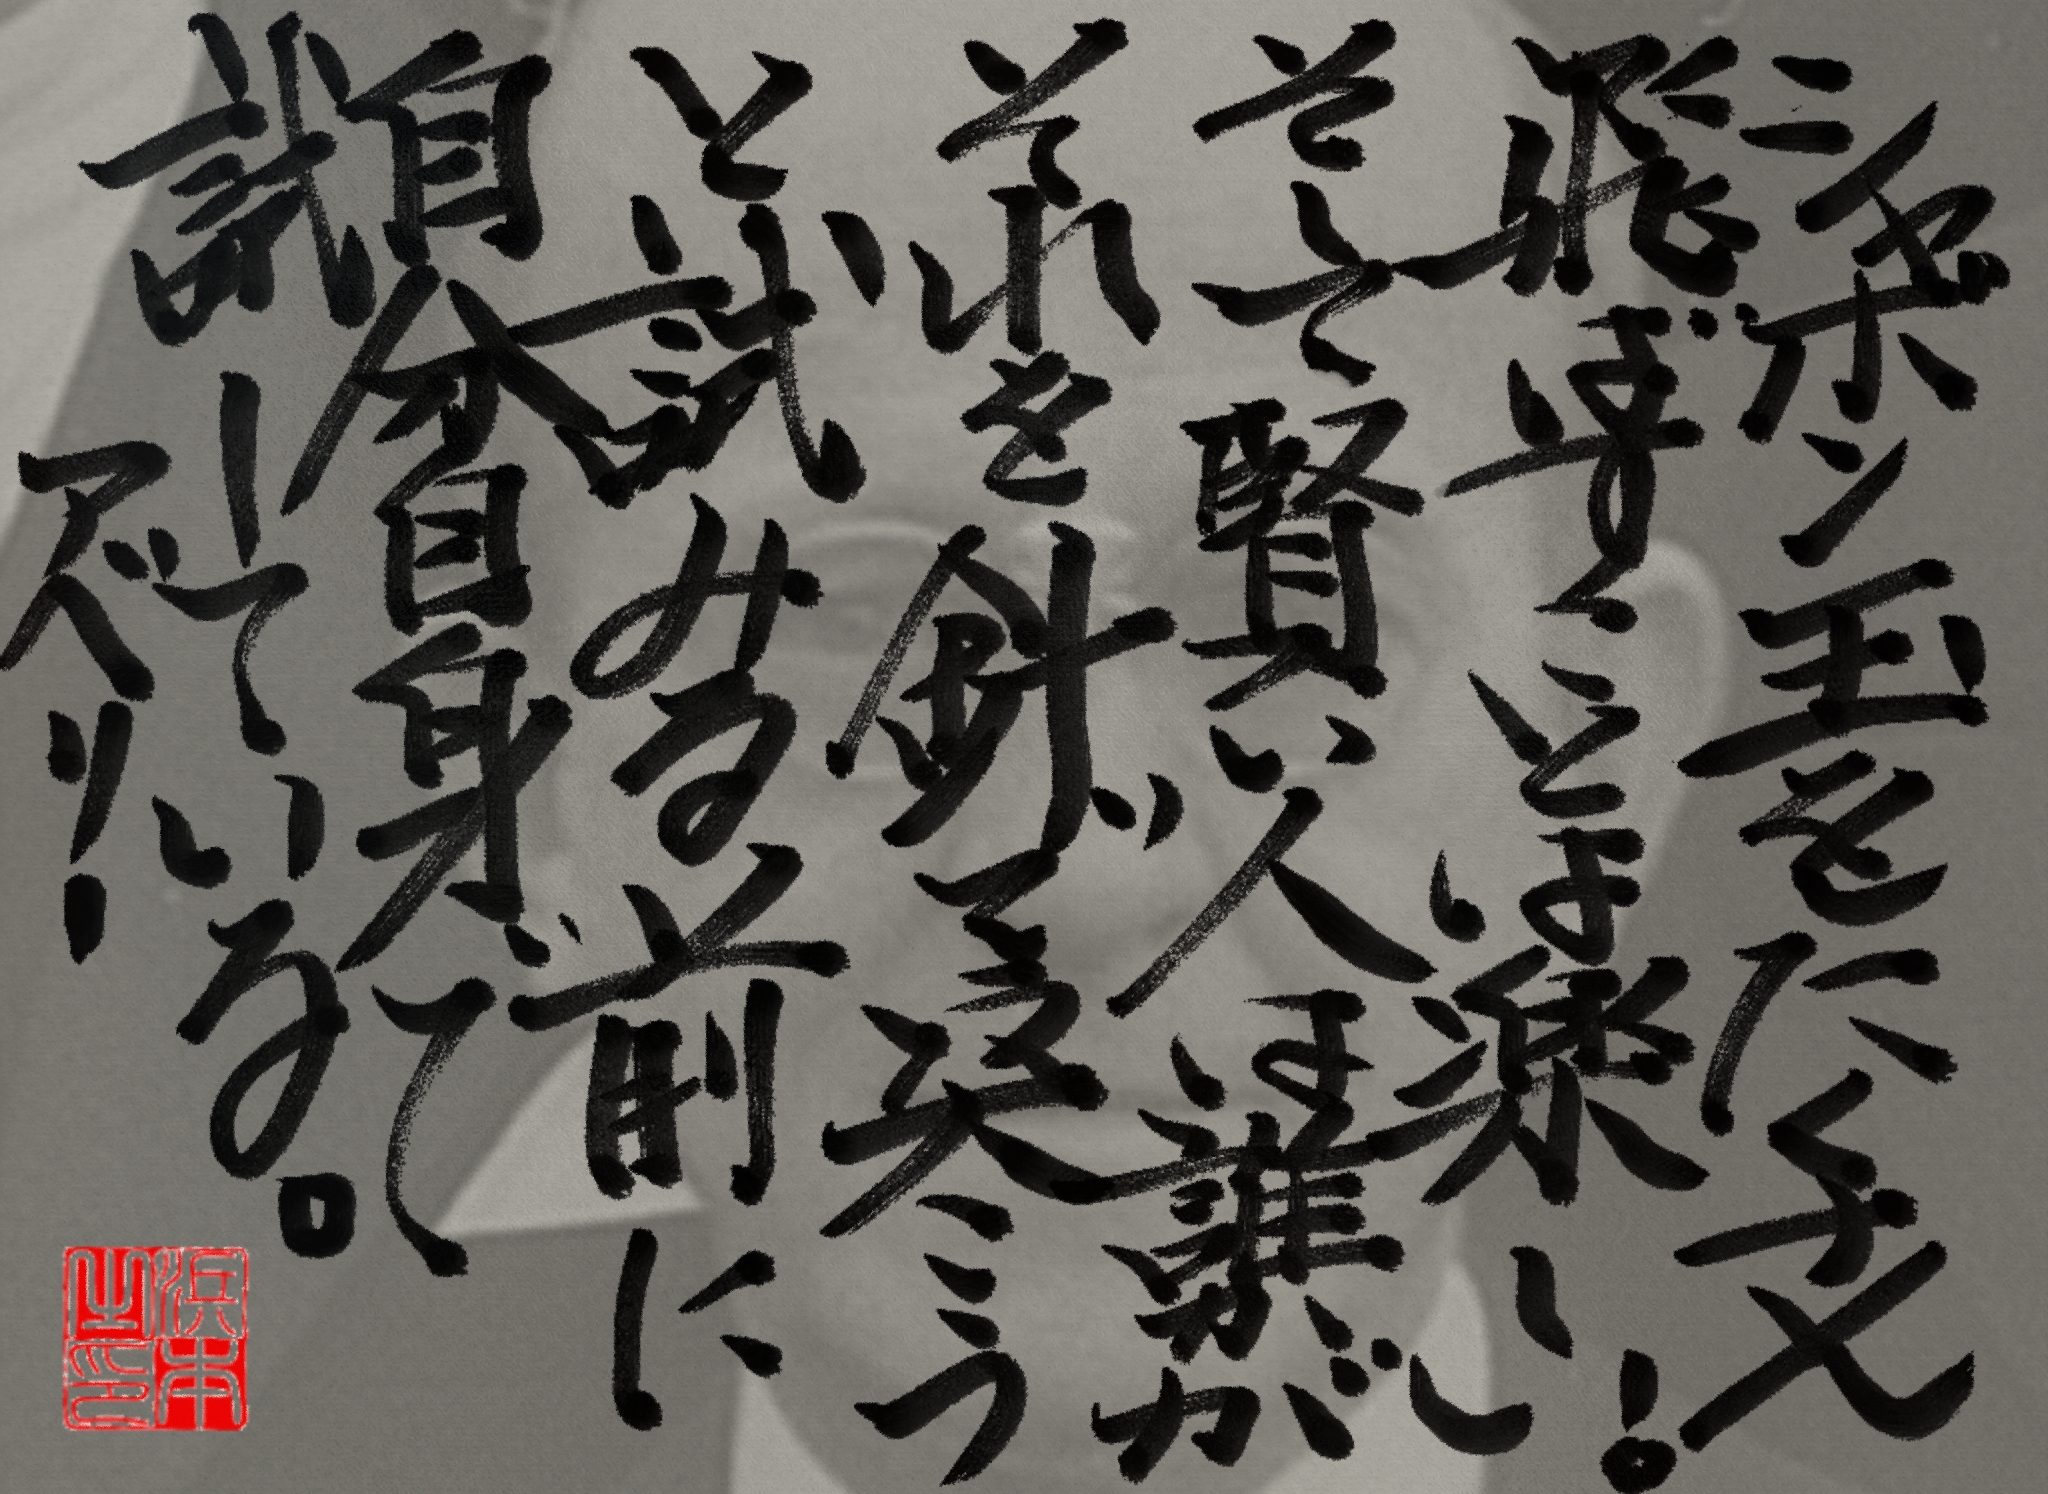 シャボン玉をたくさん
飛ばすことは楽しい!
そして賢い人は誰かが
それを針で突こう
と試みる前に
自分自身で
試している。
アベリー
浜本之印